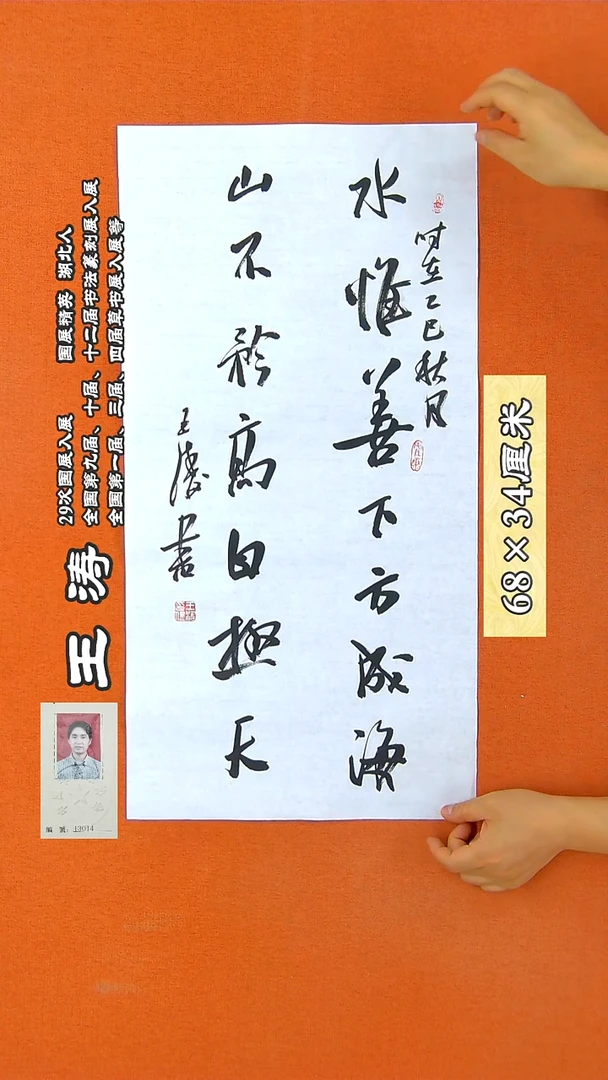 时在乙巳秋月
水惟善下方成海
山不矜高自极天
王涛书
王涛
29次国展入展 国展精英 湖北人
全国第九届、十届、十二届书法篆刻展入展
全国第一届、三届、四届草书展入展等
68×34厘米
编 号：